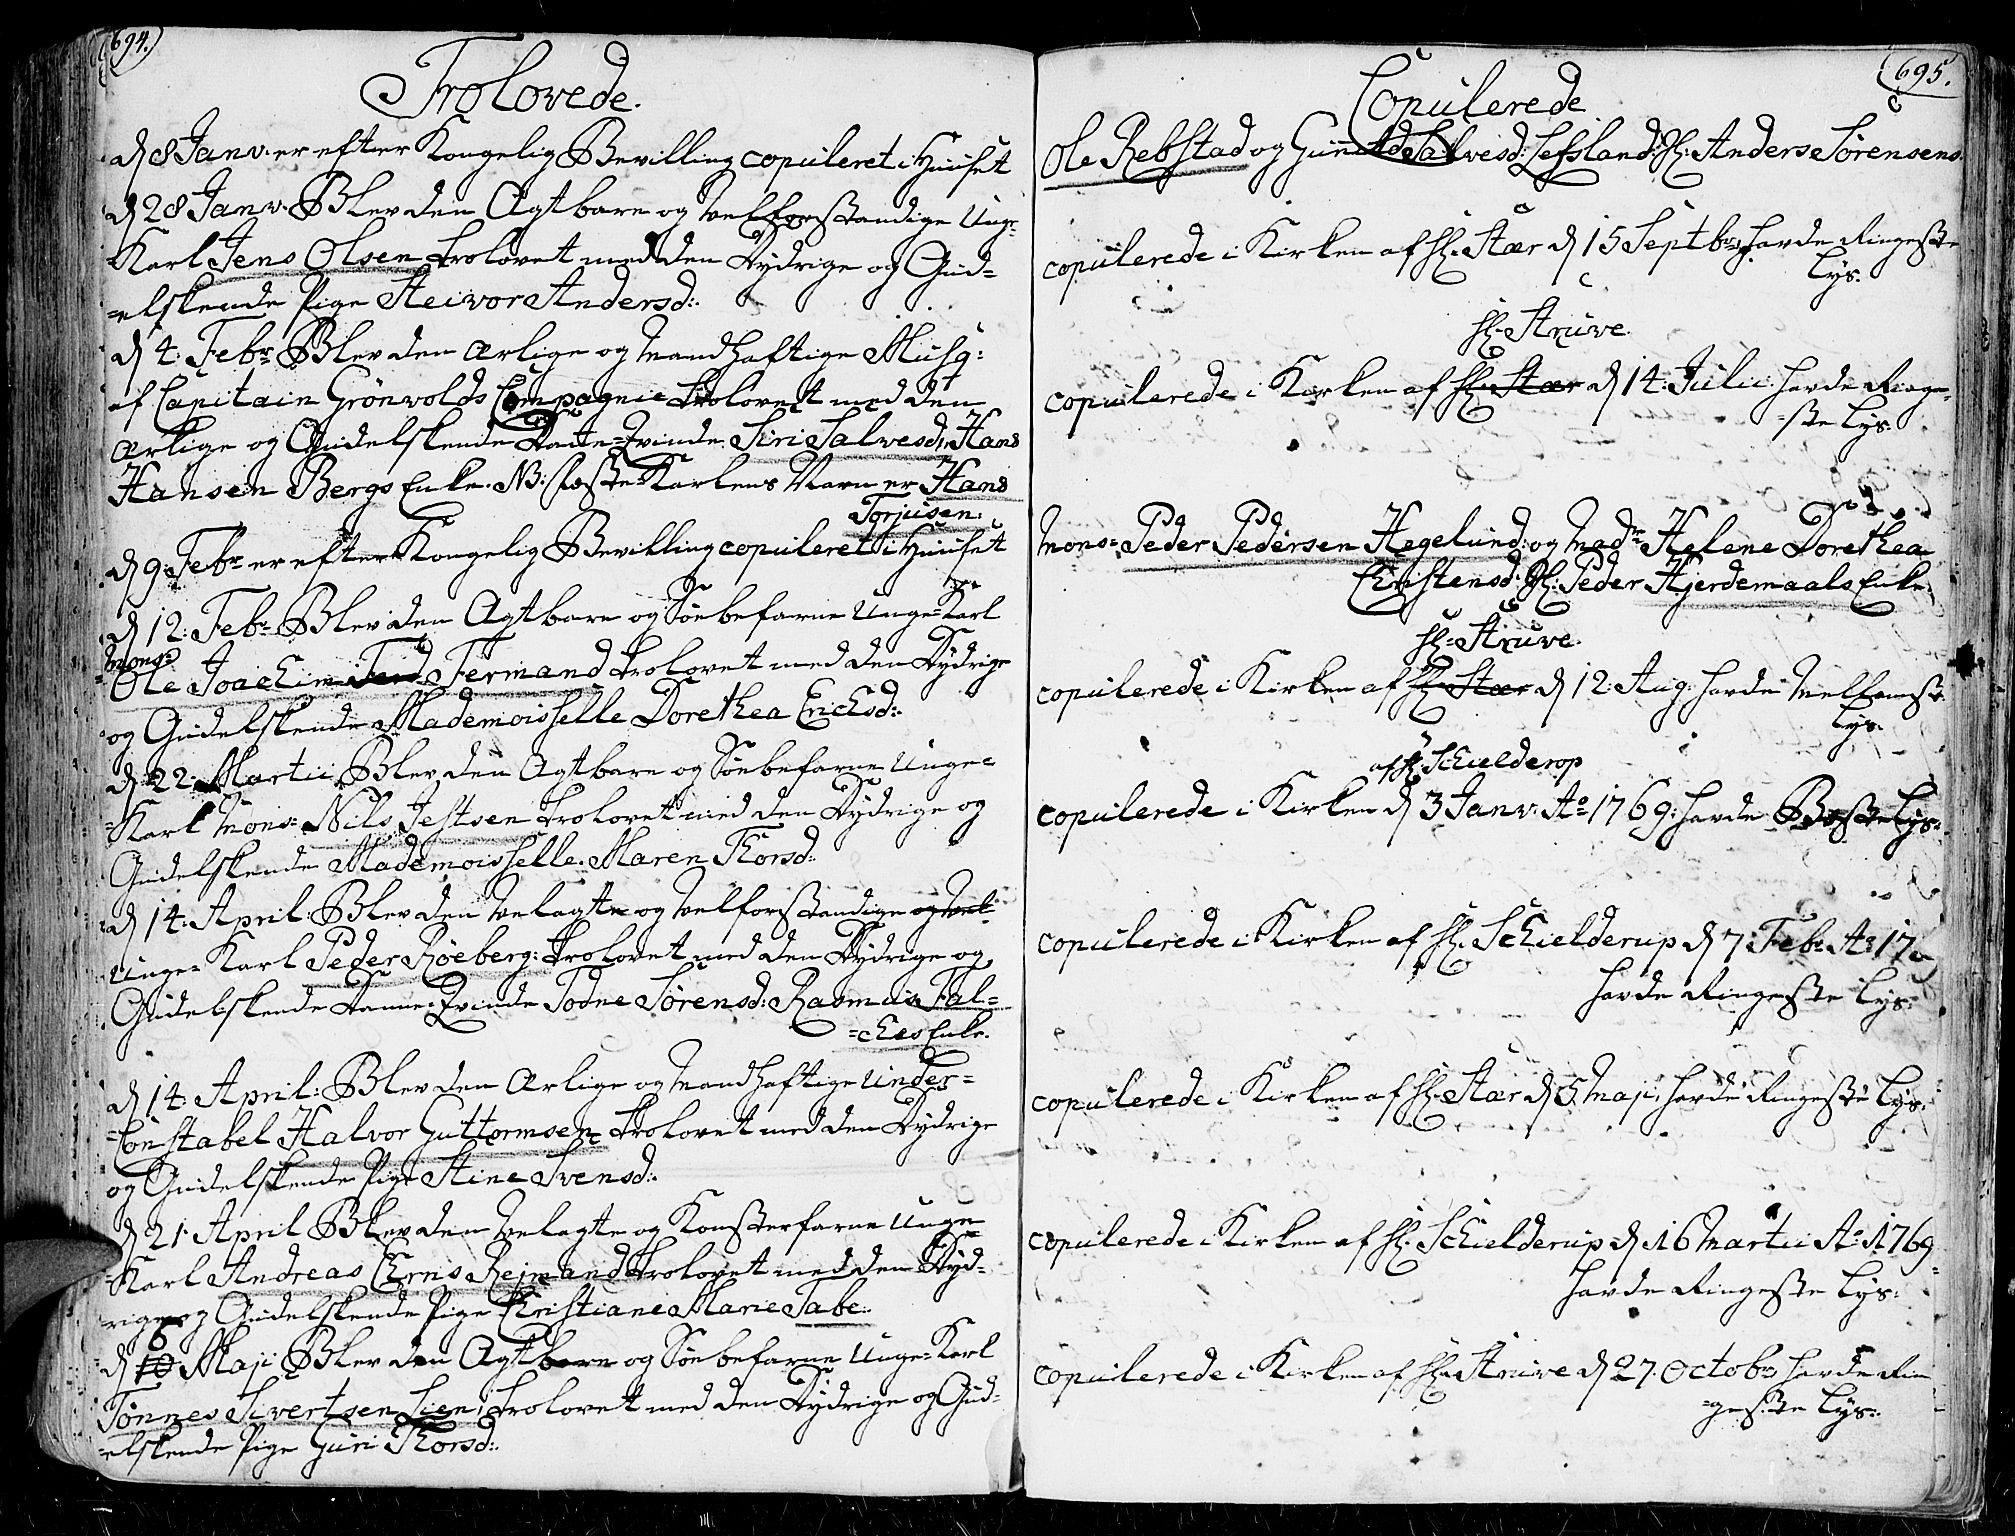 694.
Trolovede.
d 8 Janv. er efter Kongelig Bevilling copuleret i Huuset
d 28 Janv. Blev den Agtbare og Velforstandige Unge-
Karl Jens Olsen trolovet med den Dydrige og Gud=
=elskende Pige Steivor Andersd:
d 4. Febr Blev den ærlige og Mandhaftige Musq:
af Capitain Grönvolds Compagnie trolovet med den
ærlige og Gudelskende Qvinde Siri Salvesd: Hans
Hansen Bergs Enke. NB: Karlens Navn er Hans
Torjusen:
d 9: Febr er efter Kongelig Bevilling copuleret i Huuset
d 12: Febr Blev den Agtbare og Söebefarne Unge=Karl
Mons=
Ole Joachim Fermand trolovet med den Dydrige
og Gudelskende Mademoisselle Dorethea Ericksd:
d 22: Martii Blev den Agtbare og Söebefarne Unge=
=Karl Mons: Nils Jestsen trolovet med den Dydrige og
Gudelskende Mademoisselle. Maren Thorsd:
d 14: April: Blev den Velagte og Velforstandige og Vel-
Unge= Karl Peder Röeberg: trolovet med den Dydrige og
Gudelskende Danne=Qvinde Todne Sörensd: Rasmus Fal=
=ches Enke.
d 14: April: Blev den ærlige og Mandhaftige Under=
=Constabel Halvor Guttormsen trolovet med den Dydrige
og Gudelskende Pige Stine Svensd:
d 21. April Blev den Velagte og Konsterfarne Unge
=Karl Andreas Cerns Rejmand trolovet med den Dyd-
rige og Gudelskende Pige Christiane Marie Tabe:
6
d 10 Maji Blev den Agtbare og Söebefarne Unge=Karl
Tönnes Sivertsen Lien, trolovet med den Dydrige og Gud-
=elskende Pige Guri Thorsd:
695.
Copulerede
Ole Rebstad og Gunild Salvesd: Lefsland: Sl: Anders Sörensens
copulerede i Kirken af Hr. Stær d 15 Septbr, havde Ringeste
Lys:
Hr. Struve.
copulerede i Kirken af Hr. Stær d 14: Julii. havde Ringe-
=ste Lys.
Mons= Peder Pedersen Hegelund: og Mad. Helene Dorethea
Christensd: Sl: Peder Hjerdemaals Enke
Hr. Struve.
copulerede i Kirken af Hr. Stær d 12: Aug: havde
Lys.
af Hr. Schielderop
copulerede i Kirken d 3 Janv: Ao 1769: havde Beste Lys.
copulerede i Kirken af Hr. Schielderup d 7 Feb: Ao 17
havde Ringeste Lys.
copulerede i Kirken af Hr. Stær d 5. Maji, havde Ringeste Lys.
copulerede i Kirken af Hr. Schielderup d 16 Martii Ao 1769
havde Ringeste Lys.
copulerede i Kirken af Hr. Struve d 27. Octobr havde Rin
=geste Lys.